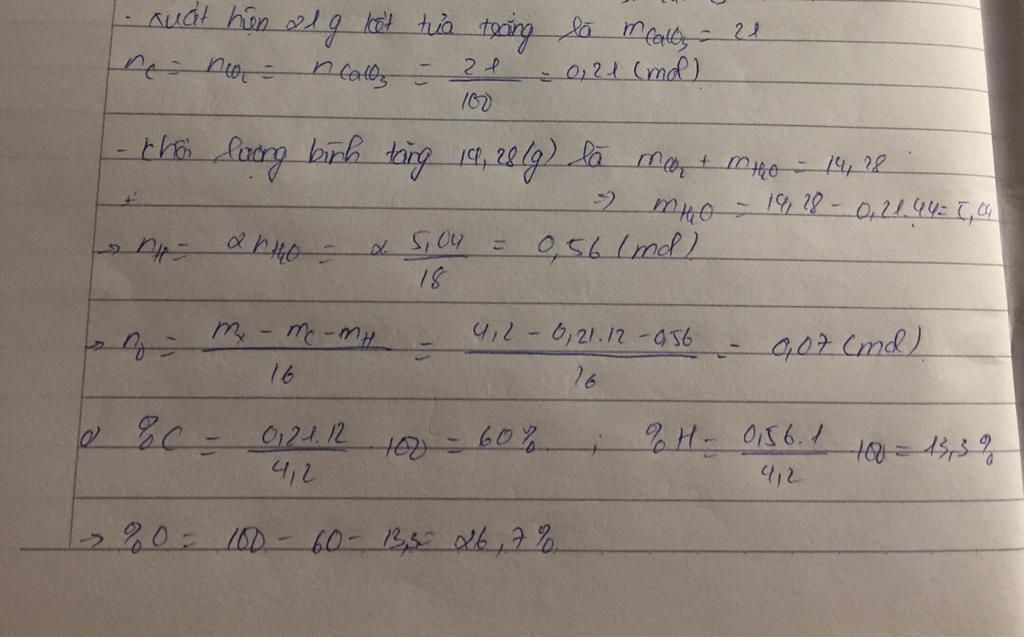 - xuất hiện 21 g kết tủa trắng là mCaCO3 = 21
nC = nCO2 = nCaCO3 = 21/100 = 0,21 (mol)
- khối lượng bình tăng 14,28(g) là mCO2 + mH2O = 14,28
=> mH2O = 14,28 - 0,21.44 = 5,04
→ nH = 2nH2O = 2 5,04/18 = 0,56 (mol)
→ nO = (mX - mC - mH)/16 = (4,2 - 0,21.12 - 0,56)/16 = 0,07 (mol)
a) %C = 0,21.12/4,2 100 = 60% ; %H = 0,56.1/4,2 100 = 13,3%
→ %O = 100 - 60 - 13,3 = 26,7%